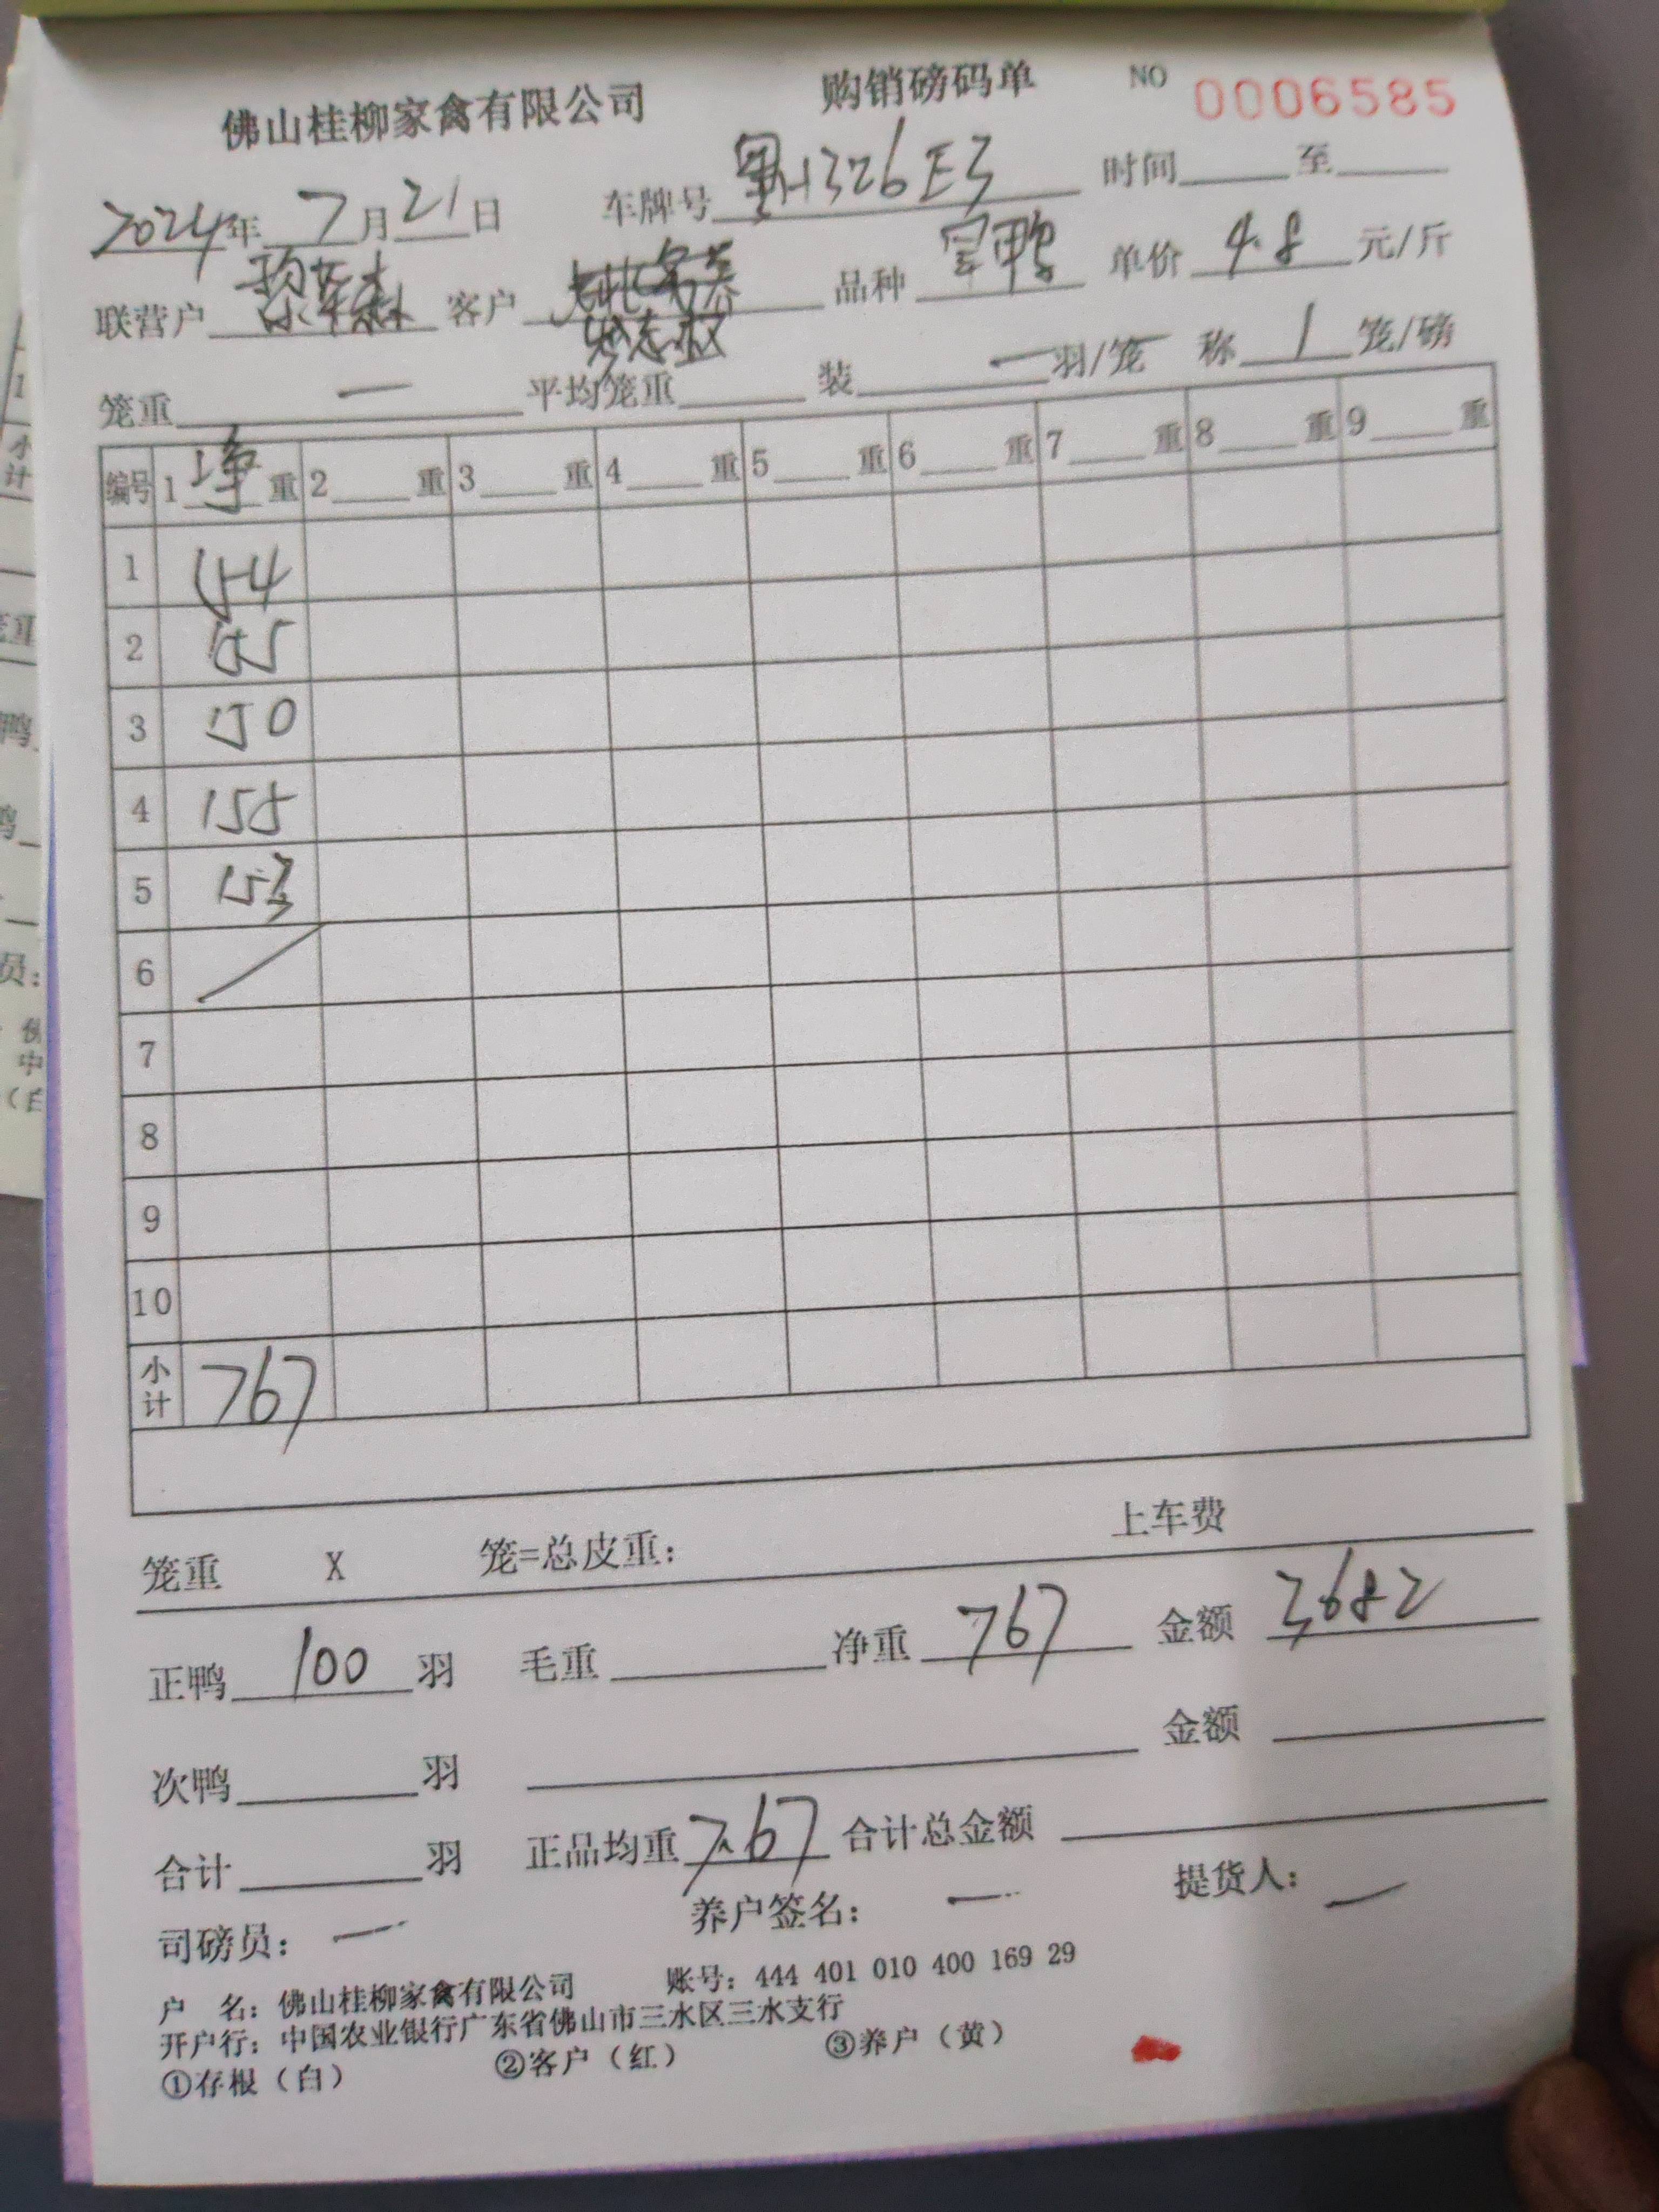 佛山桂柳家禽有限公司 购销磅码单 NO 0006585
2024年 7月21日 车牌号 粤H326E3 时间 至
联营户 客户 品种 鸭 单价 4.8 元/斤
笼重 一 平均笼重 装 一 羽/笼 称 1 笼/磅
编号 1 净 重 2 重 3 重 4 重 5 重 6 重 7 重 8 重 9 重
1 154
2 155
3 150
4 155
5 153
6
7
8
9
10
小计 767
笼重 X 笼=总皮重: 上车费
正鸭 100 羽 毛重 净重 767 金额 3682
次鸭 羽 金额
合计 羽 正品均重 7.67 合计总金额
司磅员: 一 养户签名: 一 提货人: 一
户 名: 佛山桂柳家禽有限公司 账号: 444 401 010 400 169 29
开户行: 中国农业银行广东省佛山市三水区三水支行
①存根(白) ②客户(红) ③养户(黄)